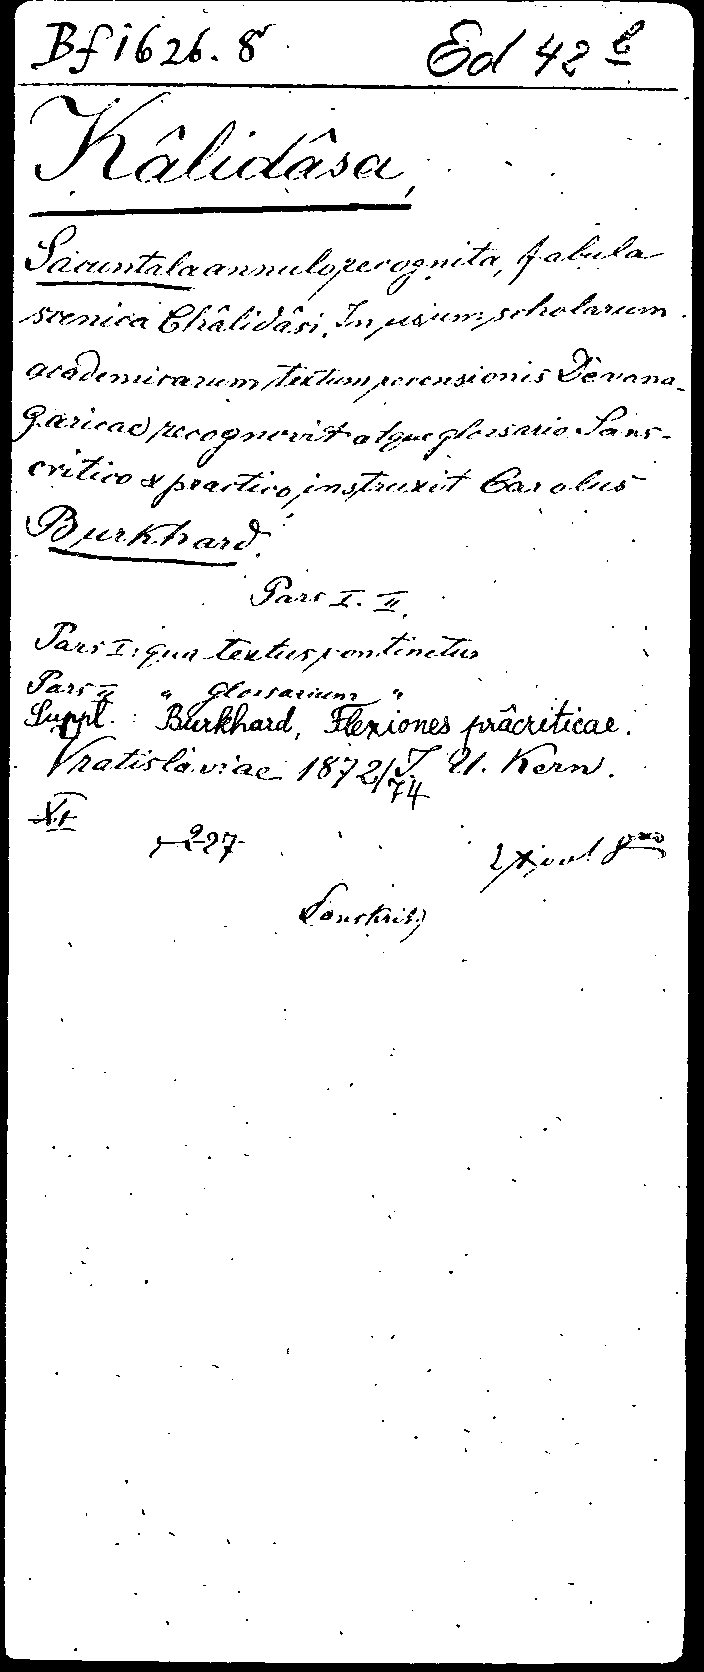 Bf 1626. 8° Ed 42 b
Kâlidâsa,
Sacuntala annulo recognita, fabula
scenica Châlidâsi. In usum scholarum
academicarum textum recensionis Dêvana-
garicae recognovit atque glossario Sans-
critico & practico instruxit Carolus
Burkhard.
Pars I. II.
Pars I: qua textus continetur
Pars II " glossarium "
Suppl. : Burkhard, Flexiones prâcriticae.
Vratislaviae 1872/74 J. U. Kern.
XI
227
Sanskrit